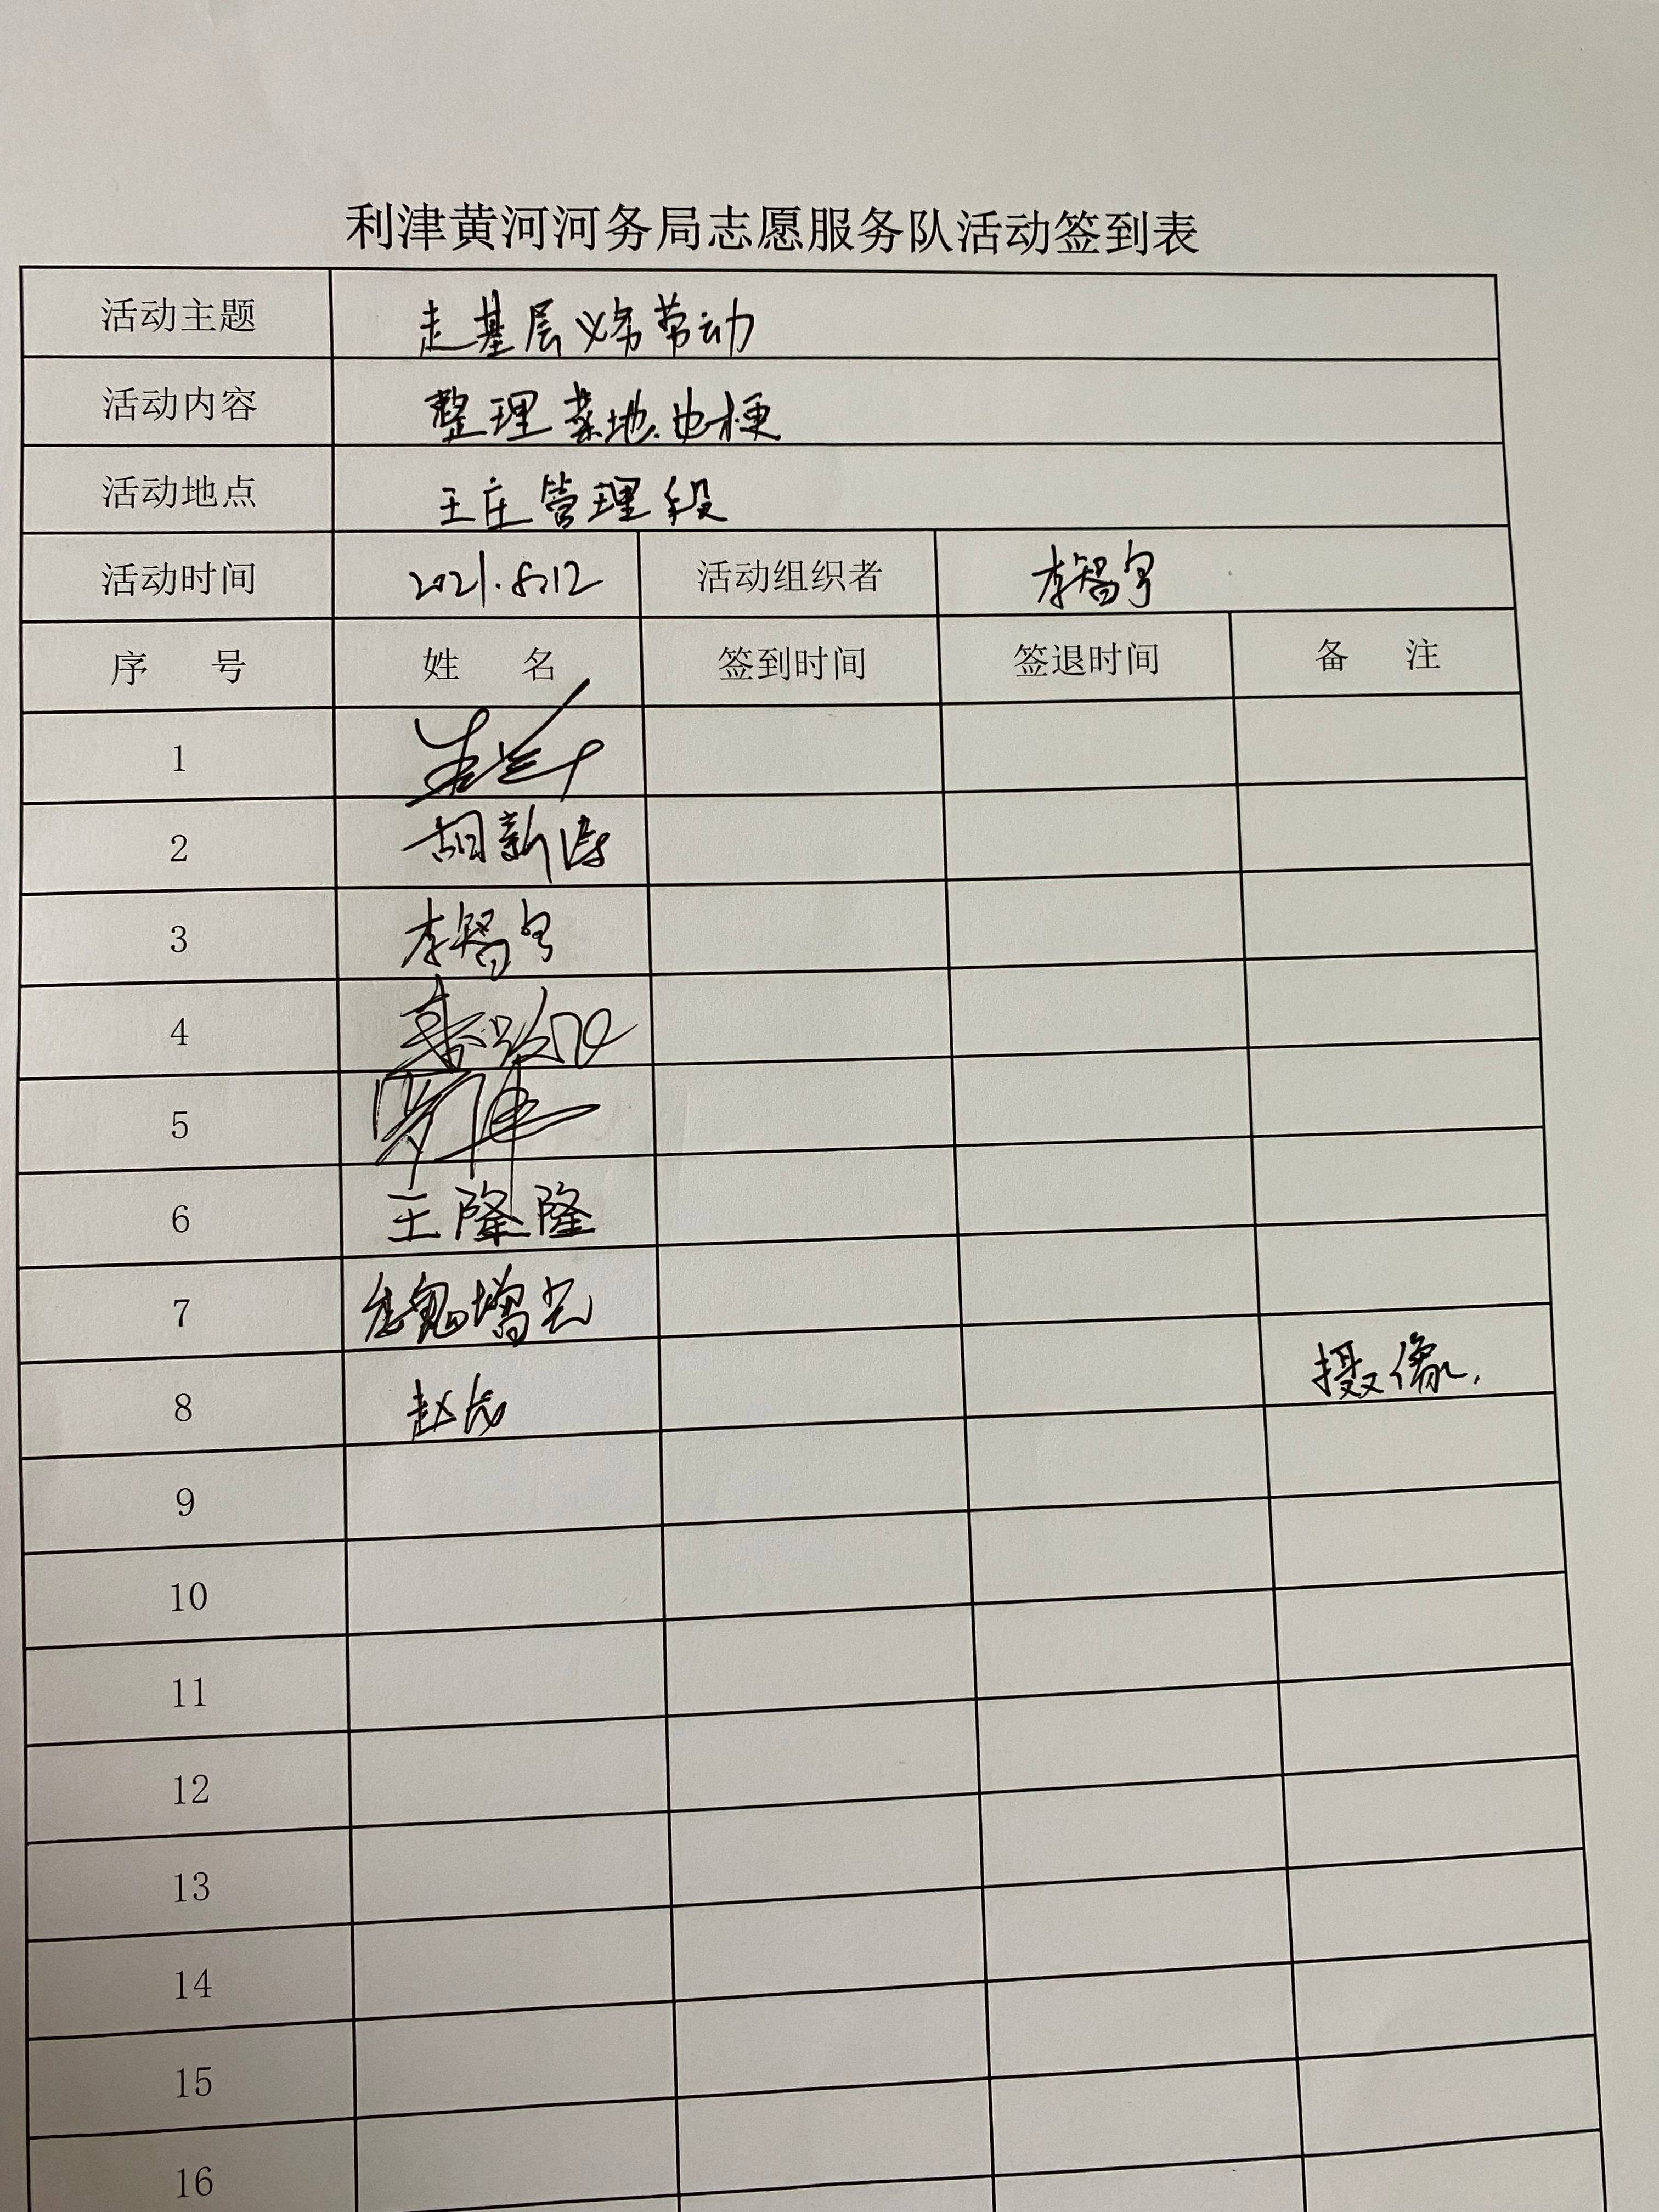 利津黄河河务局志愿服务队活动签到表
活动主题 走基层义务劳动
活动内容 整理菜地、地梗
活动地点 王庄管理段
活动时间 2021.8.12 活动组织者 李智宇
序号 姓名 签到时间 签退时间 备注
1
2 胡新涛
3 李智宇
4
5
6 王隆隆
7 增光
8 赵 摄像.
9
10
11
12
13
14
15
16